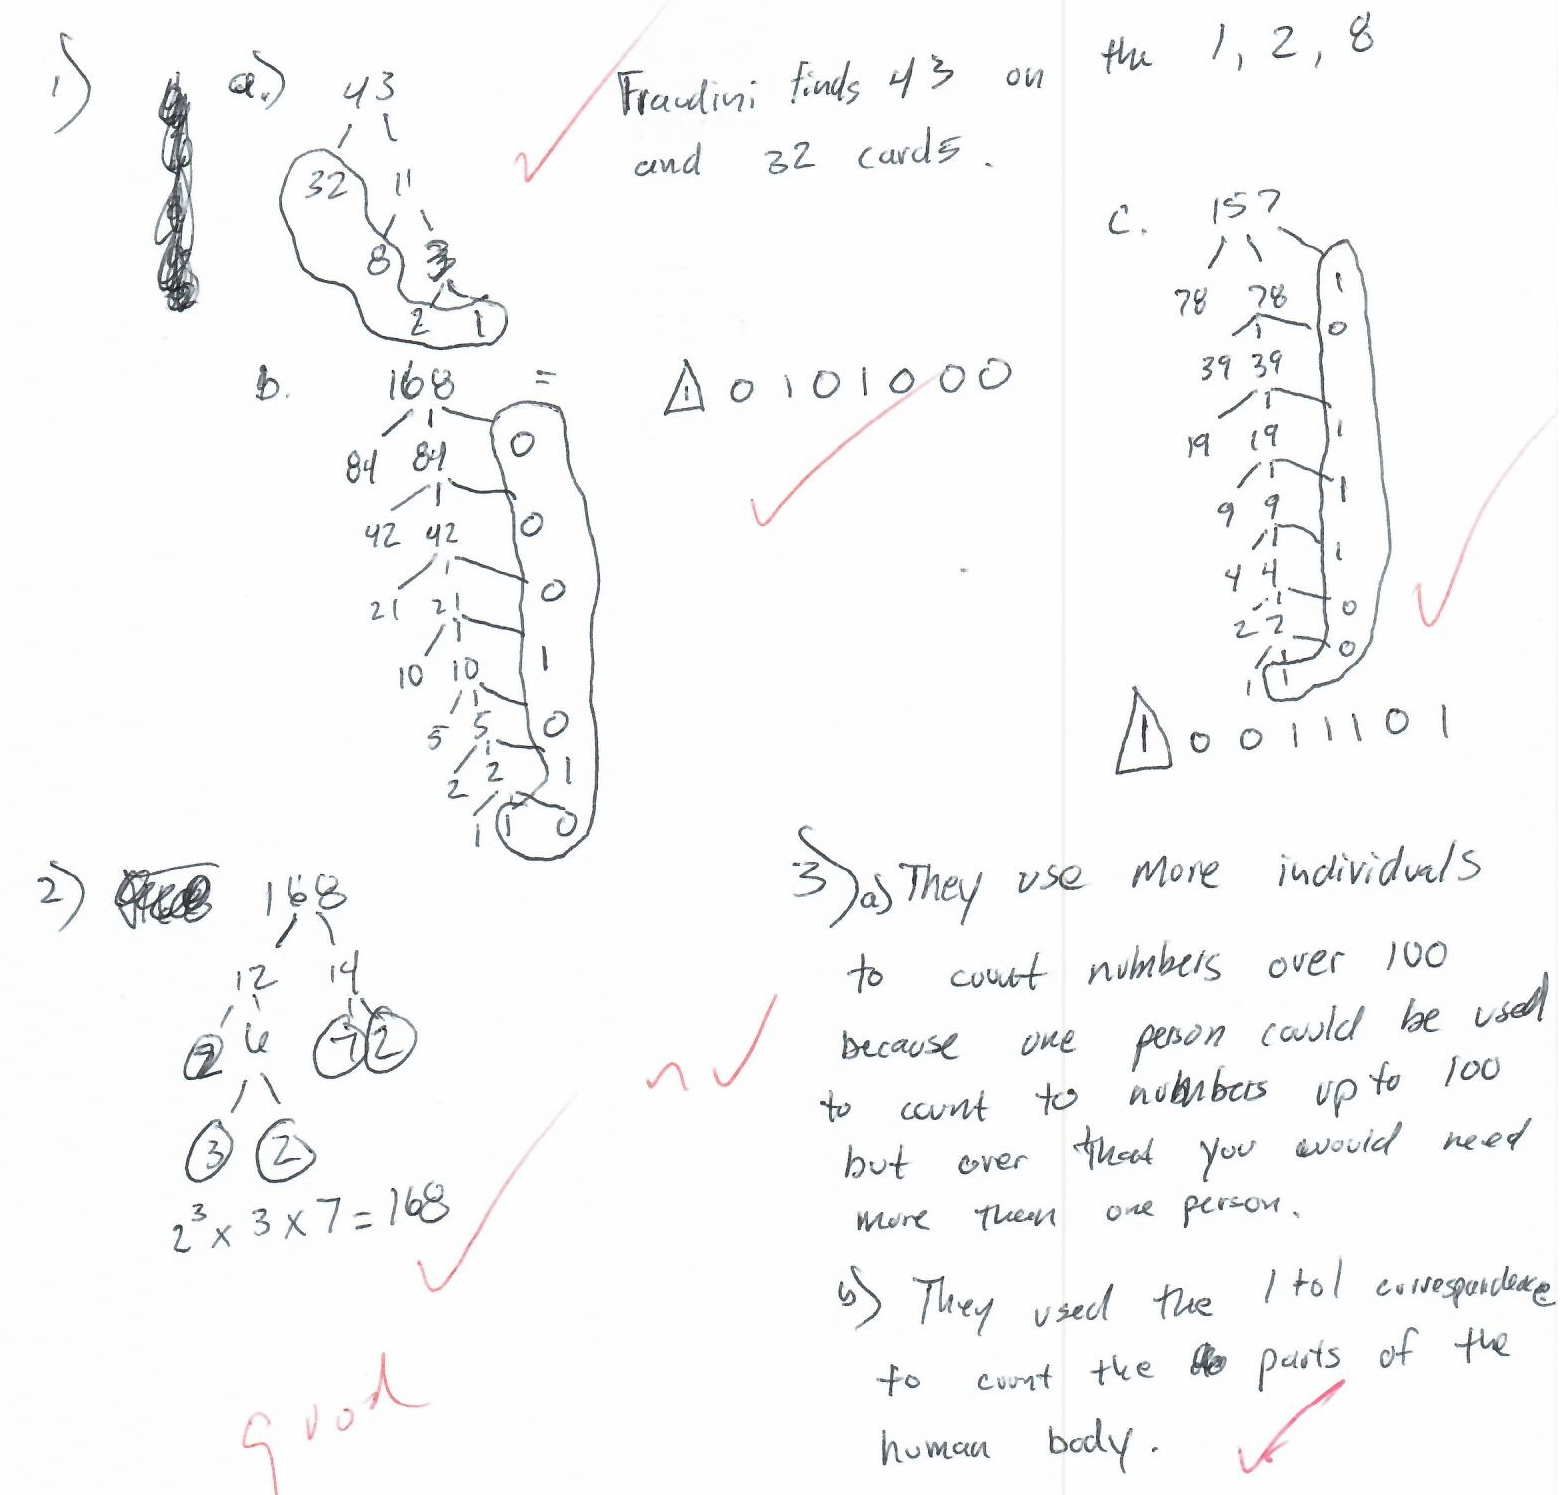 1) a.) 43
32 11
8 3
2 1
Fraudini finds 43 on the 1, 2, 8
and 32 cards.
b. 168 = 1 0 1 0 1 0 0 0
0
84 84
0
42 42
0
21 21
1
10 10
0
5 5
1
2 2
1 1 0
c. 157
1
78 78
0
39 39
1
19 19
1
9 9
1
4 4
0
2 2
0
1 1
1 0 0 1 1 1 0 1
2) 168
12 14
2 6 7 2
3 2
2³ x 3 x 7 = 168
good
3) a) They use more individuals
to count numbers over 100
because one person could be used
to count to numbers up to 100
but over that you would need
more than one person.
b) They used the 1 to 1 correspondence
to count the parts of the
human body.